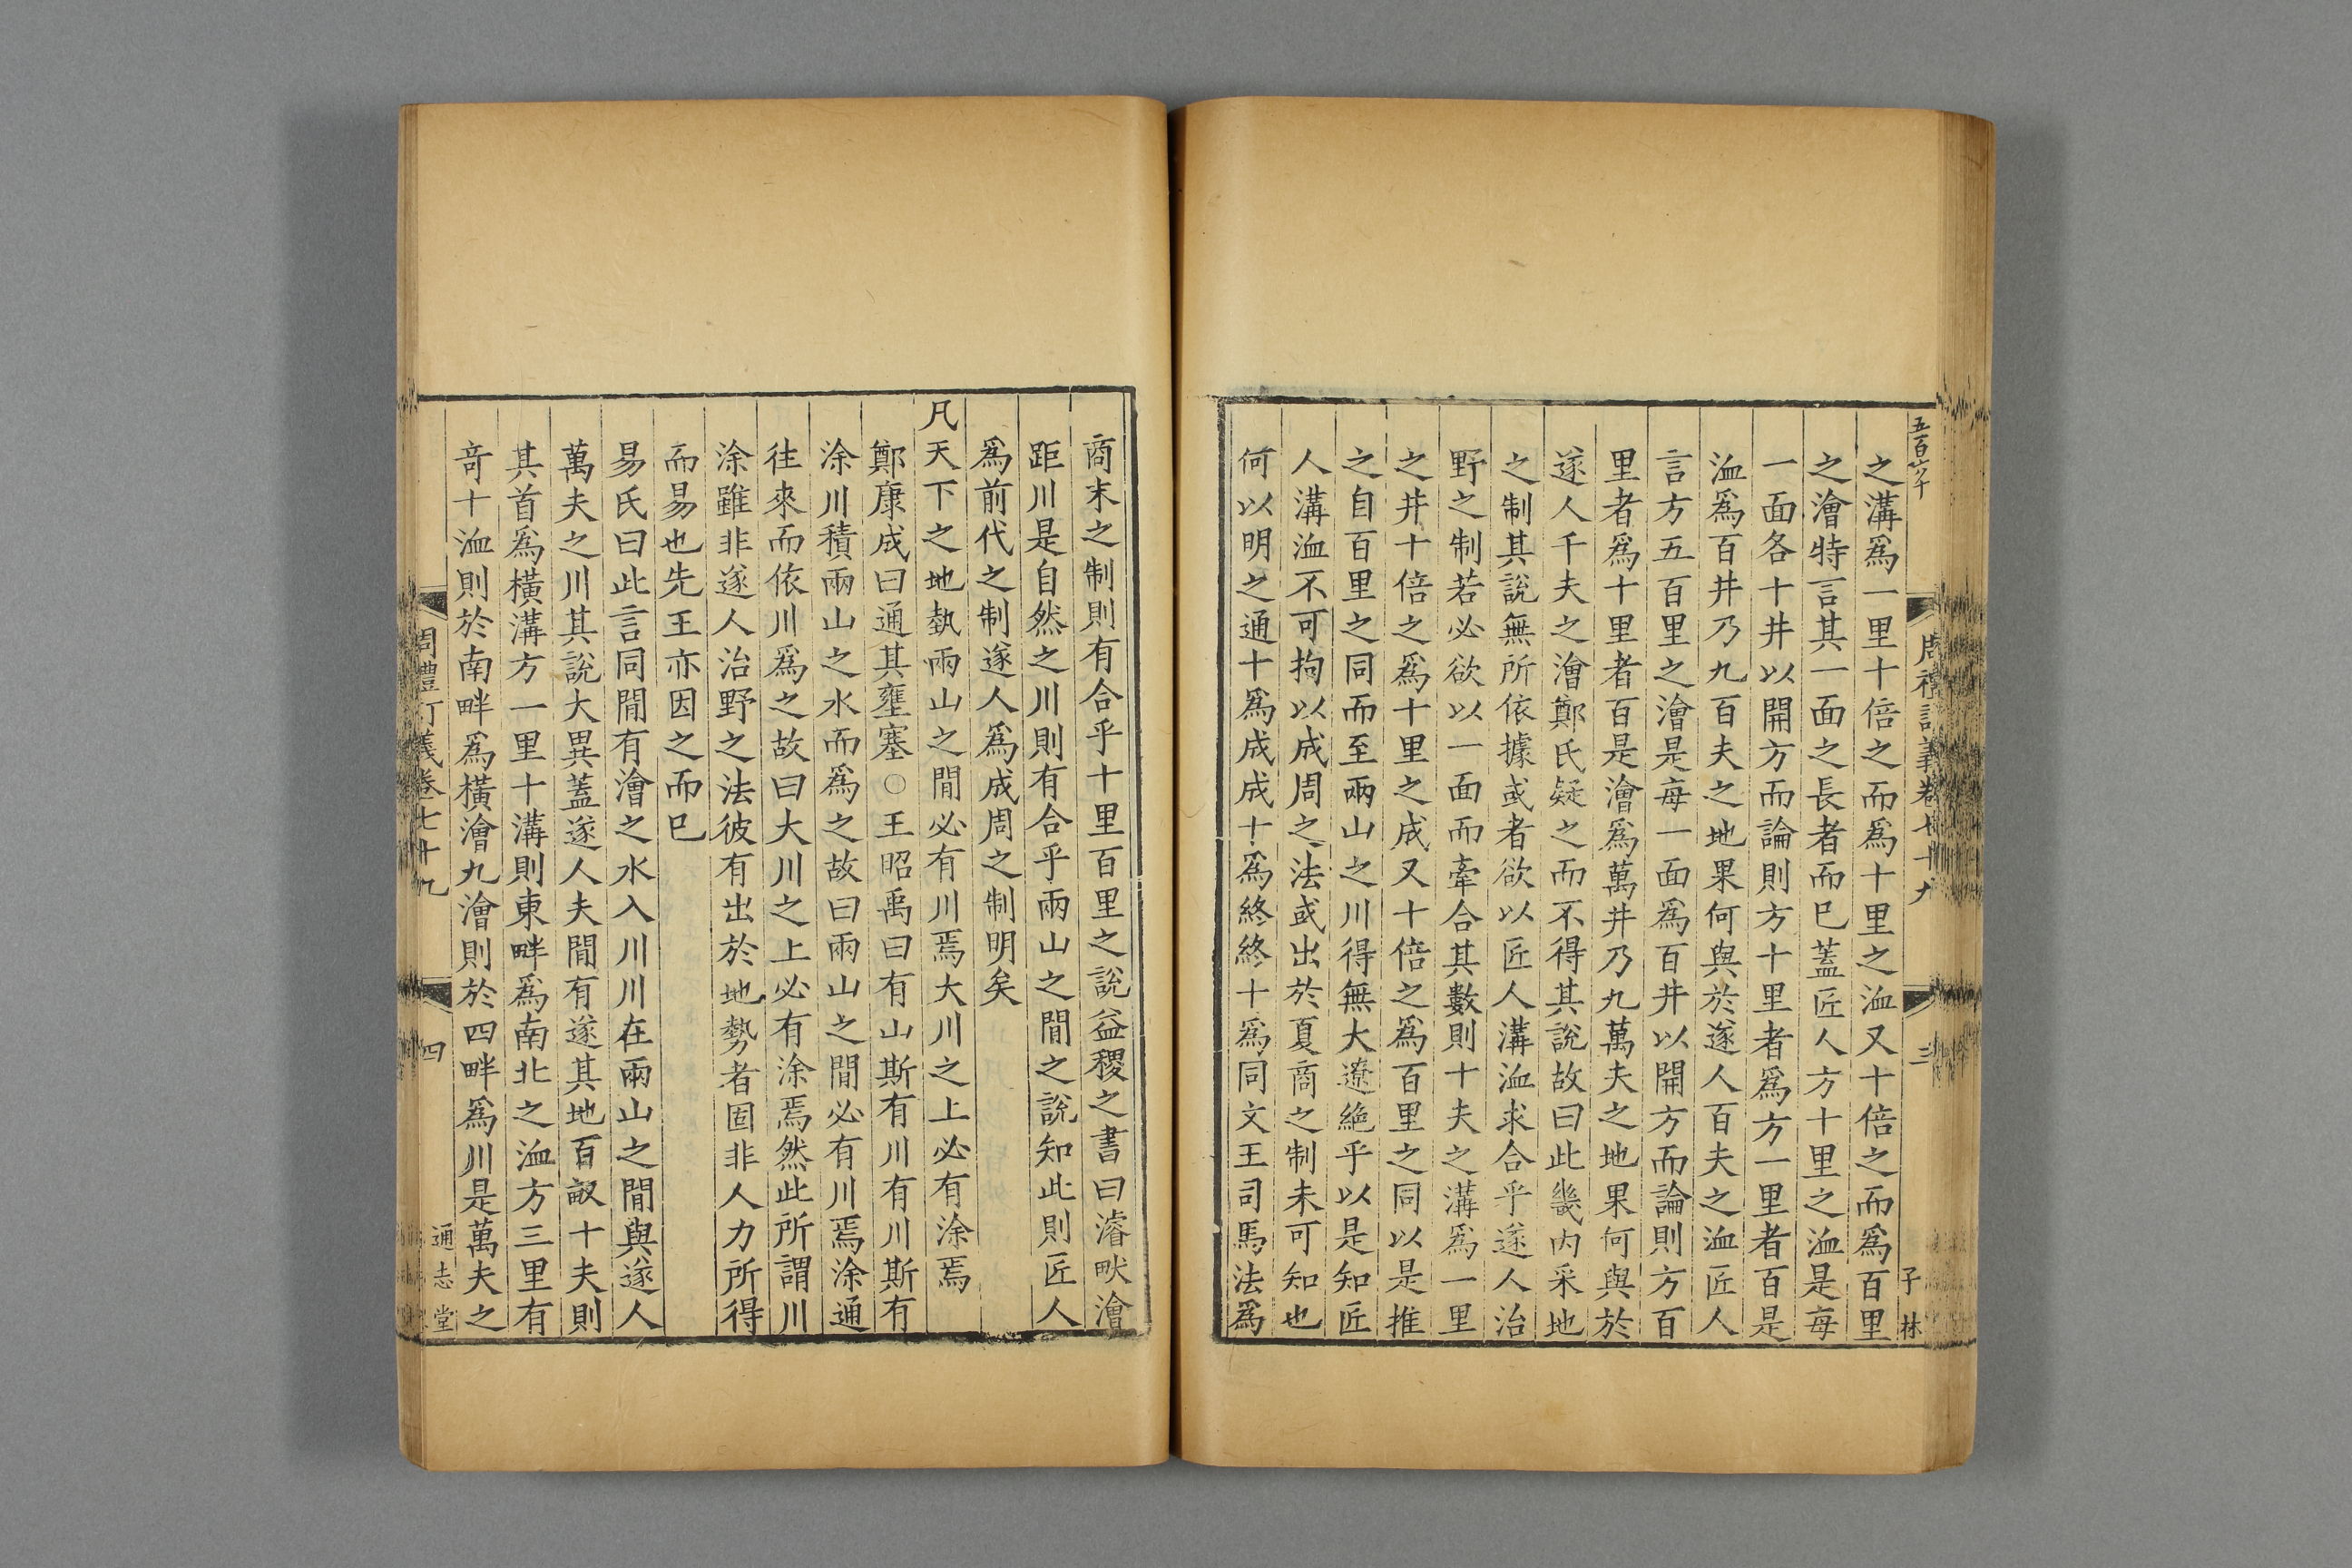 五百六十
周禮訂義卷七十九
三
子林
之溝爲一里十倍之而爲十里之洫又十倍之而爲百里
之澮特言其一面之長者而已蓋匠人方十里之洫是每
一面各十井以開方而論則方十里者爲方一里者百是
洫爲百井乃九百夫之地果何與於遂人百夫之洫匠人
言方五百里之澮是每一面爲百井以開方而論則方百
里者爲十里者百是澮爲萬井乃九萬夫之地果何與於
遂人千夫之澮鄭氏疑之而不得其說故曰此畿內采地
之制其說無所依據或者欲以匠人溝洫求合乎遂人治
野之制若必欲以一面而牽合其數則十夫之溝爲一里
之井十倍之爲十里之成又十倍之爲百里之同以是推
之自百里之同而至兩山之川得無大遼絶乎以是知匠
人溝洫不可拘以成周之法或出於夏商之制未可知也
何以明之通十爲成成十爲終終十爲同文王司馬法爲
商末之制則有合乎十里百里之說益稷之書曰濬畎澮
距川是自然之川則有合乎兩山之閒之說知此則匠人
爲前代之制遂人爲成周之制明矣
凡天下之地埶兩山之閒必有川焉大川之上必有涂焉
鄭康成曰通其壅塞○王昭禹曰有山斯有川有川斯有
涂川積兩山之水而爲之故曰兩山之閒必有川焉涂通
往來而依川爲之故曰大川之上必有涂焉然此所謂川
涂雖非遂人治野之法彼有出於地勢者固非人力所得
而易也先王亦因之而已
易氏曰此言同閒有澮之水入川川在兩山之閒與遂人
萬夫之川其說大異蓋遂人夫閒有遂其地百畝十夫則
其首爲橫溝方一里十溝則東畔爲南北之洫方三里有
竒十洫則於南畔爲橫澮九澮則於四畔爲川是萬夫之
周禮訂義卷七十九
四
通志堂